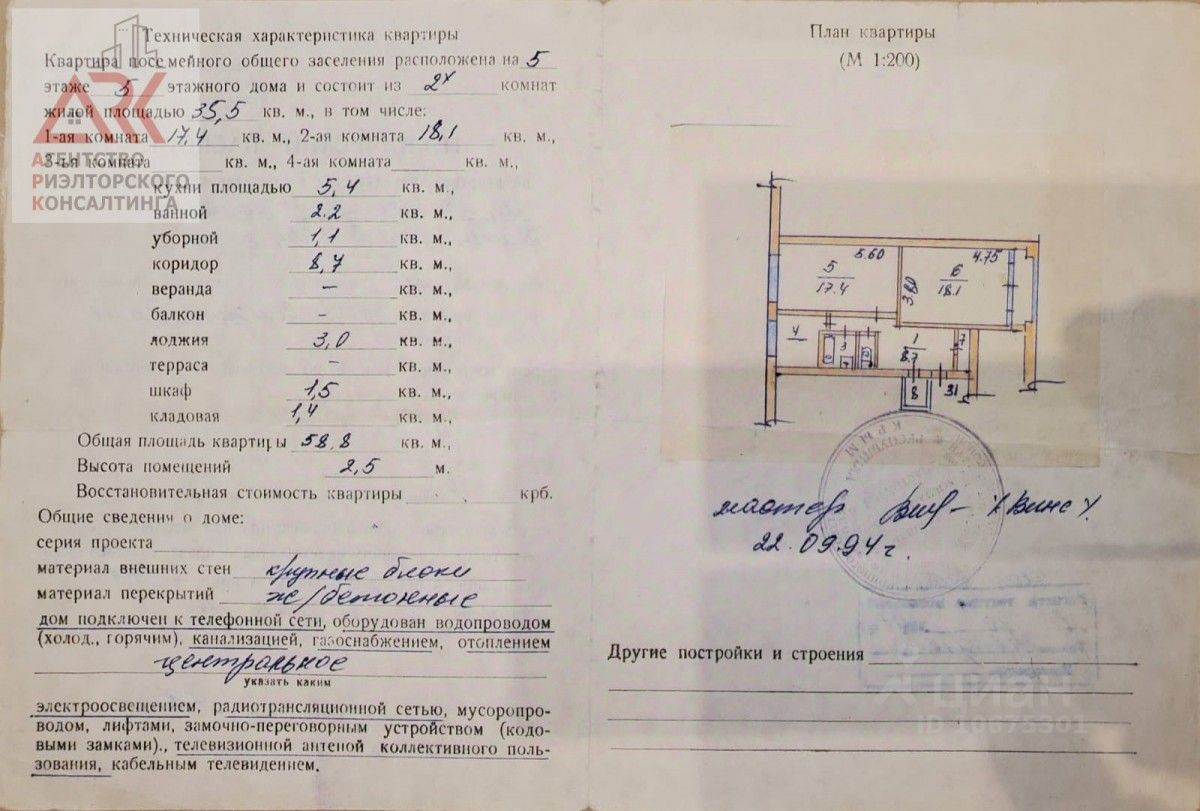 Техническая характеристика квартиры
Квартира посемейного общего заселения расположена на 5
этаже 5 этажного дома и состоит из 2х комнат
жилой площадью 35,5 кв. м., в том числе:
1-ая комната 17,4 кв. м., 2-ая комната 18,1 кв. м.,
3-ья комната кв. м., 4-ая комната кв. м.,
кухни площадью 5,4 кв. м.,
ванной 2.2 кв. м.,
уборной 1,1 кв. м.,
коридор 8,7 кв. м.,
веранда – кв. м.,
балкон – кв. м.,
лоджия 3,0 кв. м.,
терраса – кв. м.,
шкаф 1,5 кв. м.,
кладовая 1,4 кв. м.,
Общая площадь квартиры 58,8 кв. м.,
Высота помещений 2,5 м.
Восстановительная стоимость квартиры крб.
Общие сведения о доме:
серия проекта
материал внешних стен крупные блоки
материал перекрытий ж/бетонные
дом подключен к телефонной сети, оборудован водопроводом
(холод., горячим), канализацией, газоснабжением, отоплением
центральное
указать каким
электроосвещением, радиотрансляционной сетью, мусоропро-
водом, лифтами, замочно-переговорным устройством (кодо-
выми замками)., телевизионной антеной коллективного поль-
зования, кабельным телевидением.
ARK
АГЕНТСТВО
РИЭЛТОРСКОГО
КОНСАЛТИНГА
План квартиры
(М 1:200)
5.60
4.75
5
17.4
3.80
6
18.1
4
3
1
8.7
7
8
31
мастер
22.09.94 г.
Другие постройки и строения
циан